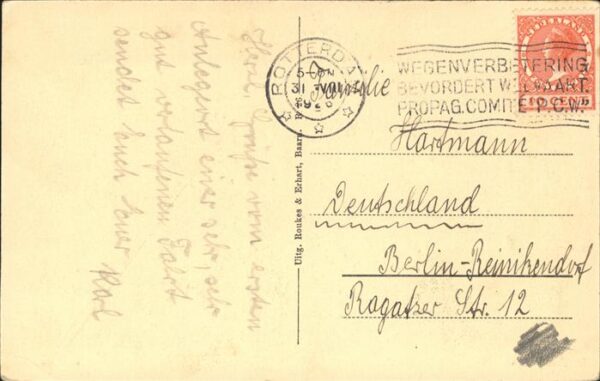 Herzl. Grüße vom ersten
Anlegeort einer sehr, sehr
gut verlaufenen Fahrt
sendet Euch Euer
Karl
Uitg. Roukes & Erhart, Baarn.
ROTTERDAM
31 VIII
NEDERLAND
WEGENVERBETERING
BEVORDERT WELVAART.
PROPAG. COMITÉ "P.C.W."
Familie
Hartmann
Deutschland
Berlin-Reinikendorf
Ragatzer Str. 12